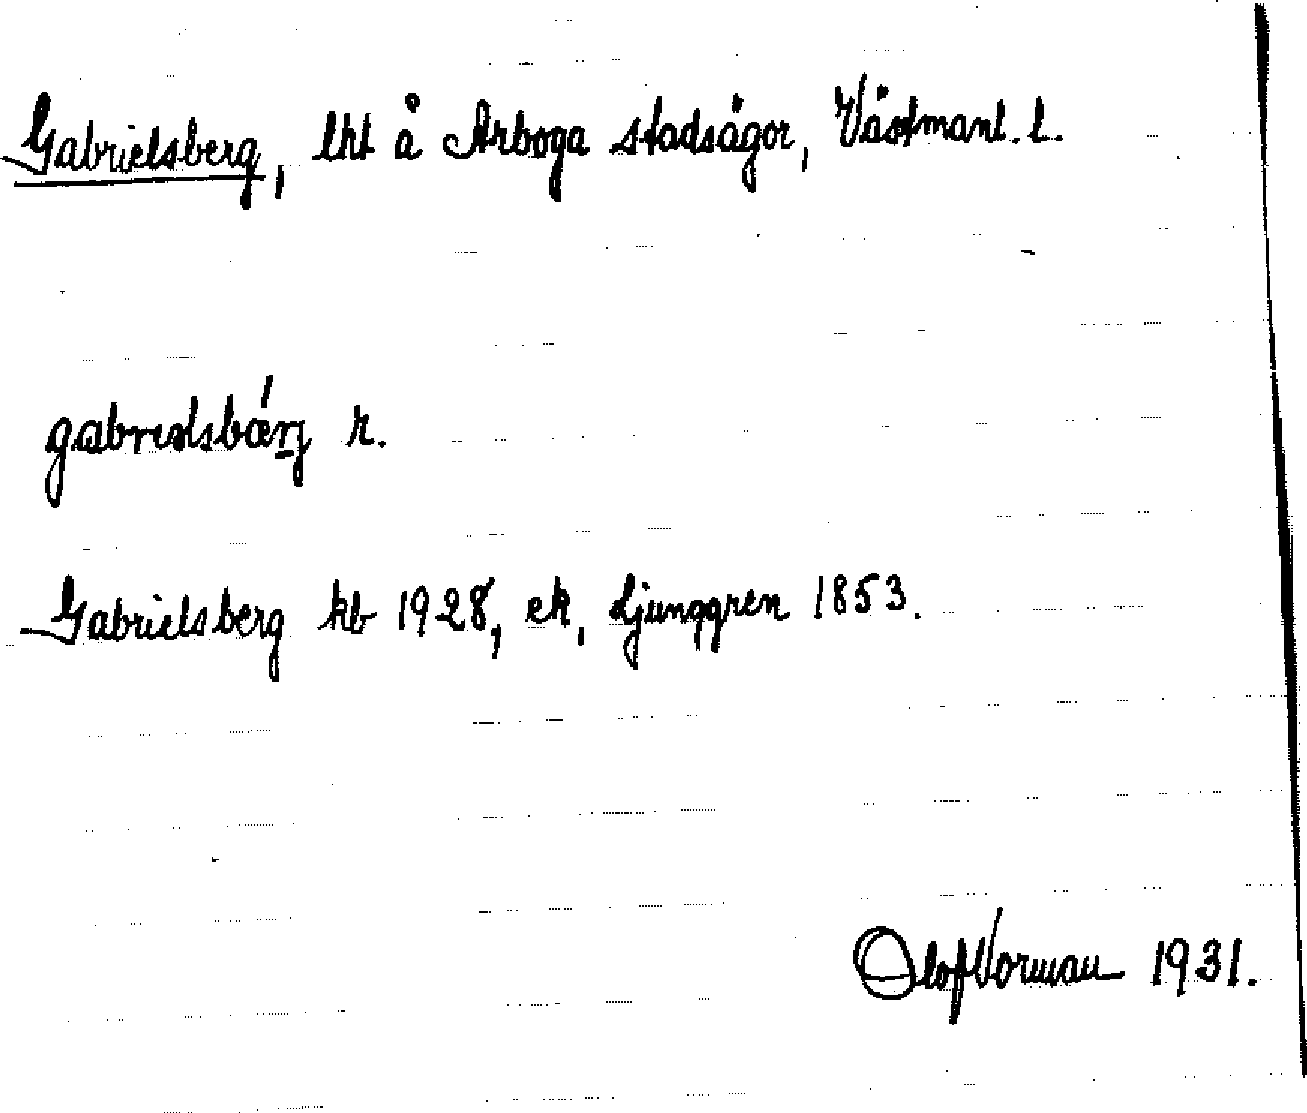 Gabrielsberg, lht å Arboga stadsägor, Västmanl. l.
gabrɪəlsbærj r.
Gabrielsberg kb 1928, ek, Ljunggren 1853.
Olof Vorman 1931.